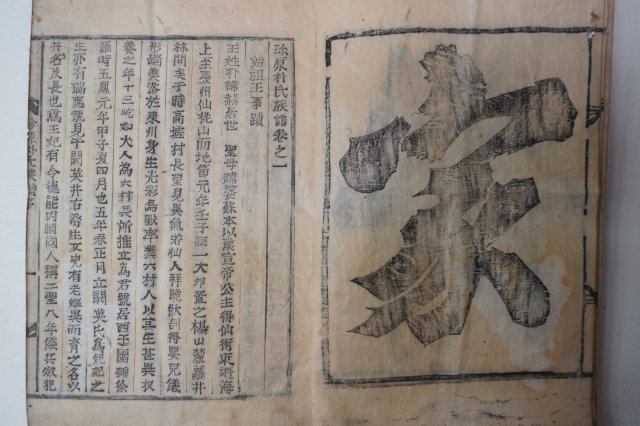 家
珎原朴氏族譜卷之一
始祖王事蹟
王姓朴諱赫居世 聖母諱婆蘇本以漢宣帝公主得仙術東遊海
上至慶州仙桃山而地節元年壬子誕一大卵置之楊山麓蘿井
林間矣于時高墟村長望見異氣若仙人拜跪狀剖得嬰兒儀
形端美浴於東川身生光彩鳥獸率舞六村人以其生甚異収
養之年十三屹如大人為六村長所推立為君號居西干國號徐
羅時五鳳元年甲子夏四月也五年春正月立閼英氏為妃妃之
生亦有瑞應龍見于閼英井右脇生女兒有老嫗異而育之名以
井名及長也為王妃有令德能內輔國人稱二聖八年倭兵欲犯